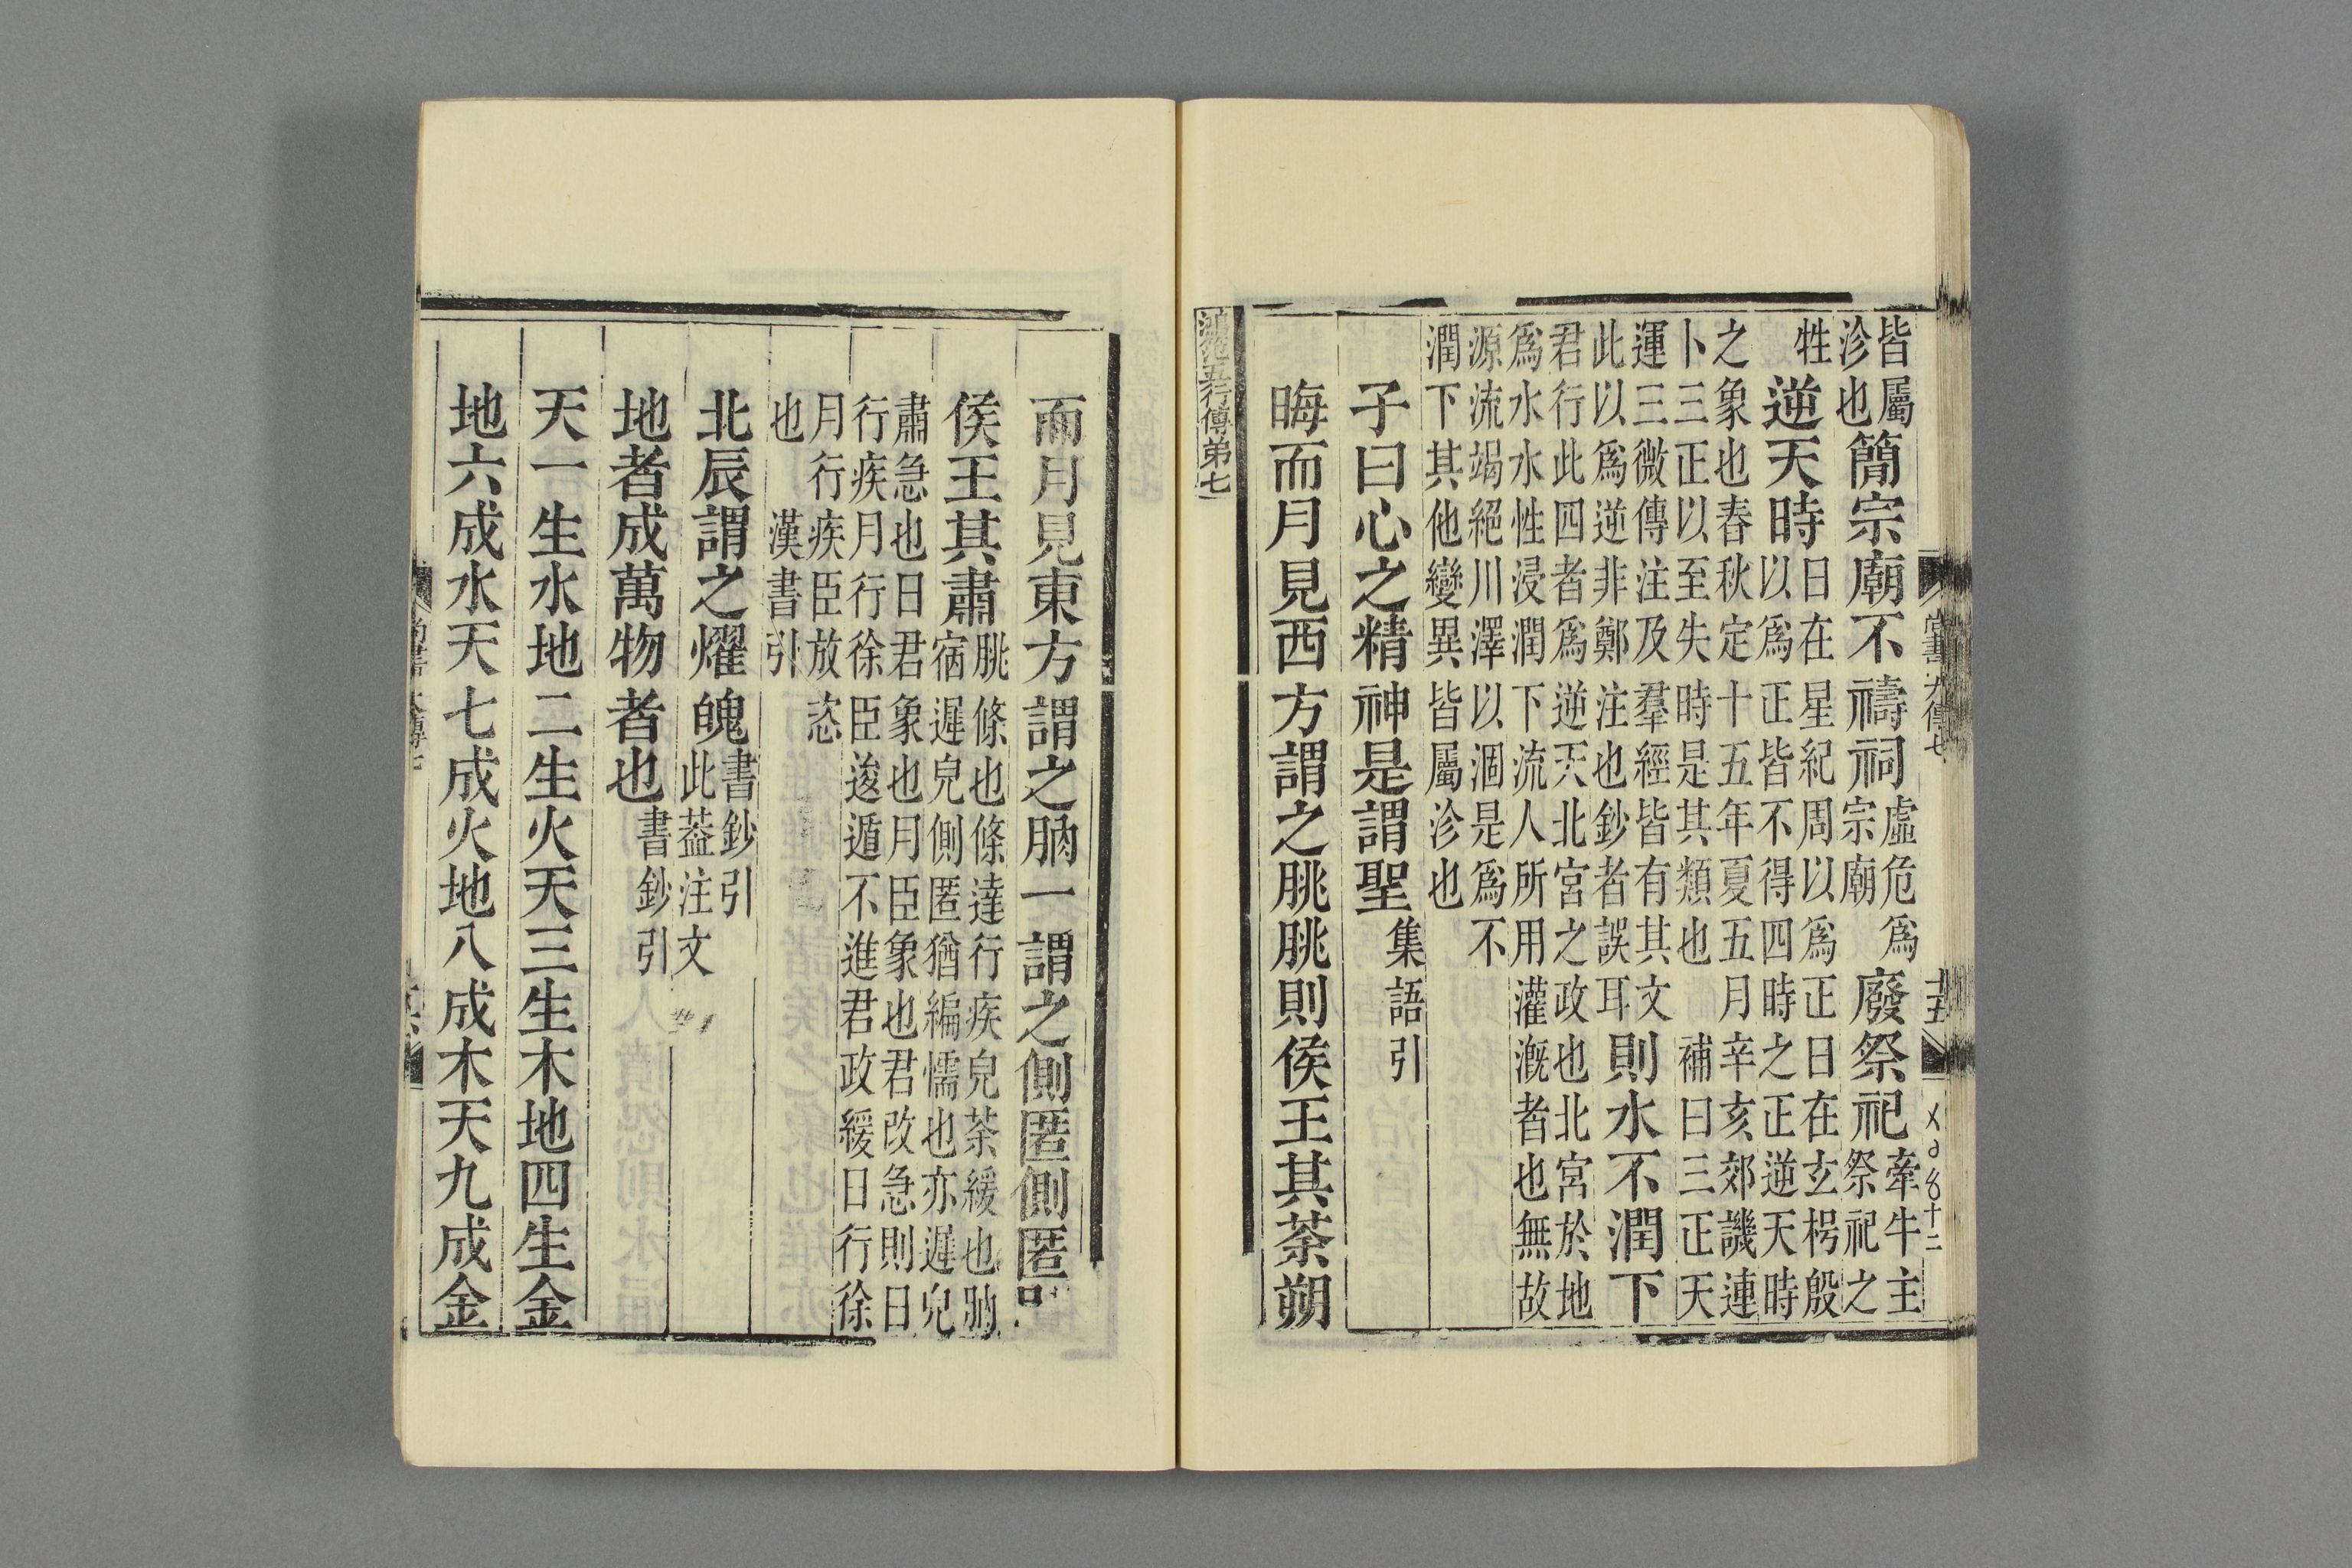 皆屬
沴也
簡宗廟不禱祠
虛危爲
宗廟
廢祭祀
牽牛主
祭祀之
牲
逆天時
日在星紀周以爲正日在玄枵殷
以爲正皆不得四時之正逆天時
之象也春秋定十五年夏五月辛亥郊譏連
卜三正以至失時是其類也 補曰三正天
運三微傳注及羣經皆有其文
此以爲逆非鄭注也鈔者誤耳
則水不潤下
君行此四者爲逆天北宮之政也北宮於地
爲水水性浸潤下流人所用灌漑者也無故
源流竭絕川澤以涸是爲不
潤下其他變異皆屬沴也
子曰心之精神是謂聖
集語引
晦而月見西方謂之朓朓則侯王其荼朔
鴻範五行傳弟七
尚書大傳七
十五
而月見東方謂之朒一謂之側匿側匿
侯王其肅
朓條也條達行疾皃荼緩也朒
宿遲皃側匿猶編懦也亦遲皃
肅急也日君象也月臣象也君改急則日
行疾月行徐臣逡遁不進君政緩日行徐
月行疾臣放恣
也 漢書引
北辰謂之燿魄
書鈔引
此葢注文
地者成萬物者也
書鈔引
天一生水地二生火天三生木地四生金
地六成水天七成火地八成木天九成金